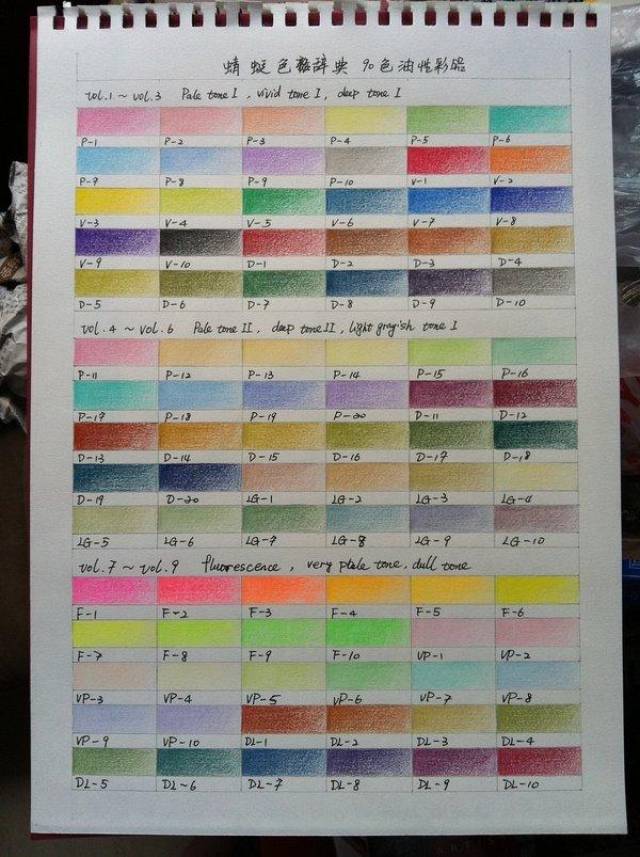 蜻蜓色雜辞典 90色油性彩铅
vol.1～vol.3 Pale tone I, vivid tone I, deep tone I
P-1 P-2 P-3 P-4 P-5 P-6
P-7 P-8 P-9 P-10 V-1 V-2
V-3 V-4 V-5 V-6 V-7 V-8
V-9 V-10 D-1 D-2 D-3 D-4
D-5 D-6 D-7 D-8 D-9 D-10
vol.4～vol.6 Pale tone II, deep tone II, light grayish tone I
P-11 P-12 P-13 P-14 P-15 P-16
P-17 P-18 P-19 P-20 D-11 D-12
D-13 D-14 D-15 D-16 D-17 D-18
D-19 D-20 LG-1 LG-2 LG-3 LG-4
LG-5 LG-6 LG-7 LG-8 LG-9 LG-10
vol.7～vol.9 fluorescence, very ptale tone, dull tone
F-1 F-2 F-3 F-4 F-5 F-6
F-7 F-8 F-9 F-10 VP-1 VP-2
VP-3 VP-4 VP-5 VP-6 VP-7 VP-8
VP-9 VP-10 DL-1 DL-2 DL-3 DL-4
DL-5 DL-6 DL-7 DL-8 DL-9 DL-10